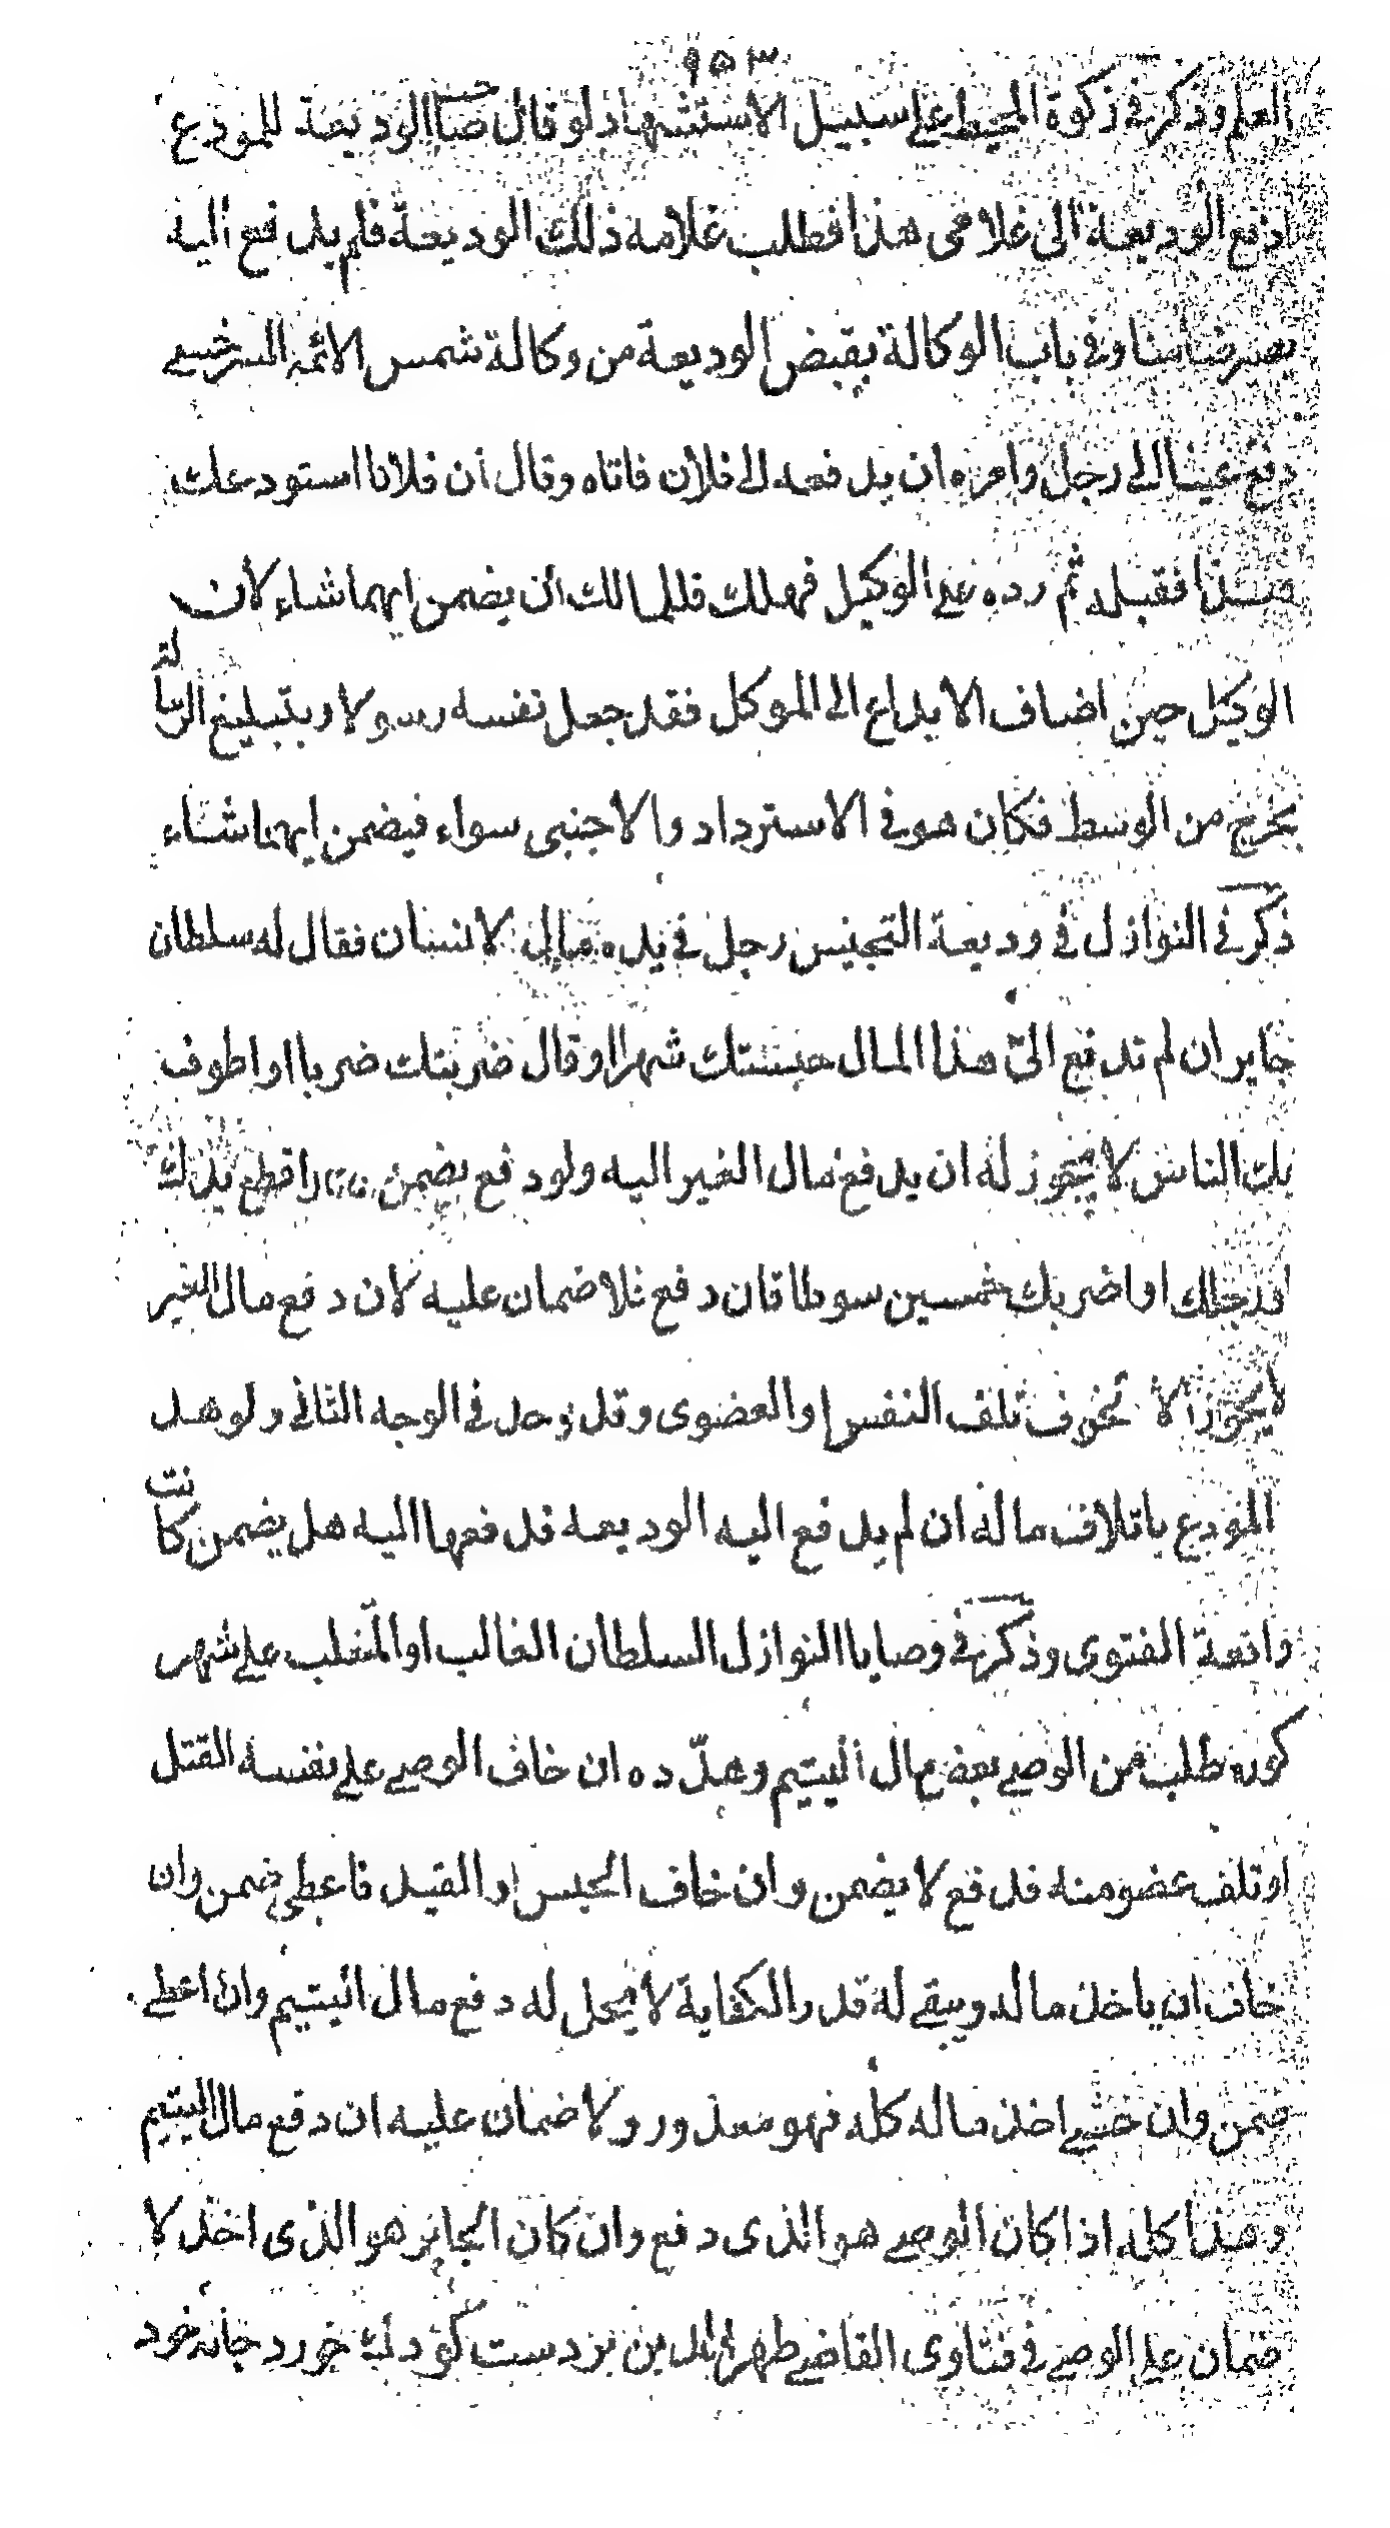 ٩٥٣
العلم وذكر في زكوة المحيط على سبيل الاستشهاد لو قال صاحب الوديعة للمودع
ادفع الوديعة الى غلامى هذا فطلب غلامه ذلك الوديعة فلم يدفع اليه
يصير ضامنا وفى باب الوكالة بقبض الوديعة من وكالة شمس الائمة السرخسى
دفع عينا الى رجل وامره ان يدفعه الى فلان فاتاه وقال ان فلانا استودعك
هذا فقبله ثم رده على الوكيل فهلك فللمالك ان يضمن ايهما شاء لان
الوكيل حين اضاف الايداع الى الموكل فقد جعل نفسه رسولا وبتبليغ الرسالة
يخرج من الوسط فكان هو فى الاسترداد والاجنبى سواء فيضمن ايهما شاء
ذكر فى النوازل فى وديعة التجنيس رجل فى يده مال لانسان فقال له سلطان
جاير ان لم تدفع الىّ هذا المال حبستك شهرا او قال ضربتك ضربا او اطوف
بك الناس لا يجوز له ان يدفع مال الغير اليه ولو دفع يضمن اقطع يدك
او اضربك خمسين سوطا فان دفع فلا ضمان عليه لان دفع مال الغير
لا يجوز الا تخوف تلف النفس او العضو وقد وجد فى الوجه الثانى ولو هدد
المودع باتلاف ماله ان لم يدفع اليه الوديعة فدفعها اليه هل يضمن كانت
واقعة الفتوى وذكر فى وصايا النوازل السلطان الغالب او المتغلب على شهر
كوره طلب من الوصى بعض مال اليتيم وهدّده ان خاف الوصى على نفسه القتل
او تلف عضو منه فدفع لا يضمن وان خاف الحبس او القيد فاعطى ضمن وان
خاف ان ياخذ ماله ويبقى له قدر الكفاية لا يحل له دفع مال اليتيم وان اعطى
ضمن وان خشى اخذ ماله كله فهو معذور ولا ضمان عليه ان دفع مال اليتيم
وهذا كله اذا كان الوصى هو الذى دفع وان كان الجاير هو الذى اخذ لا
ضمان على الوصى فى فتاوى القاضى ظهير الدين بزدست كودك خورد جانه خود